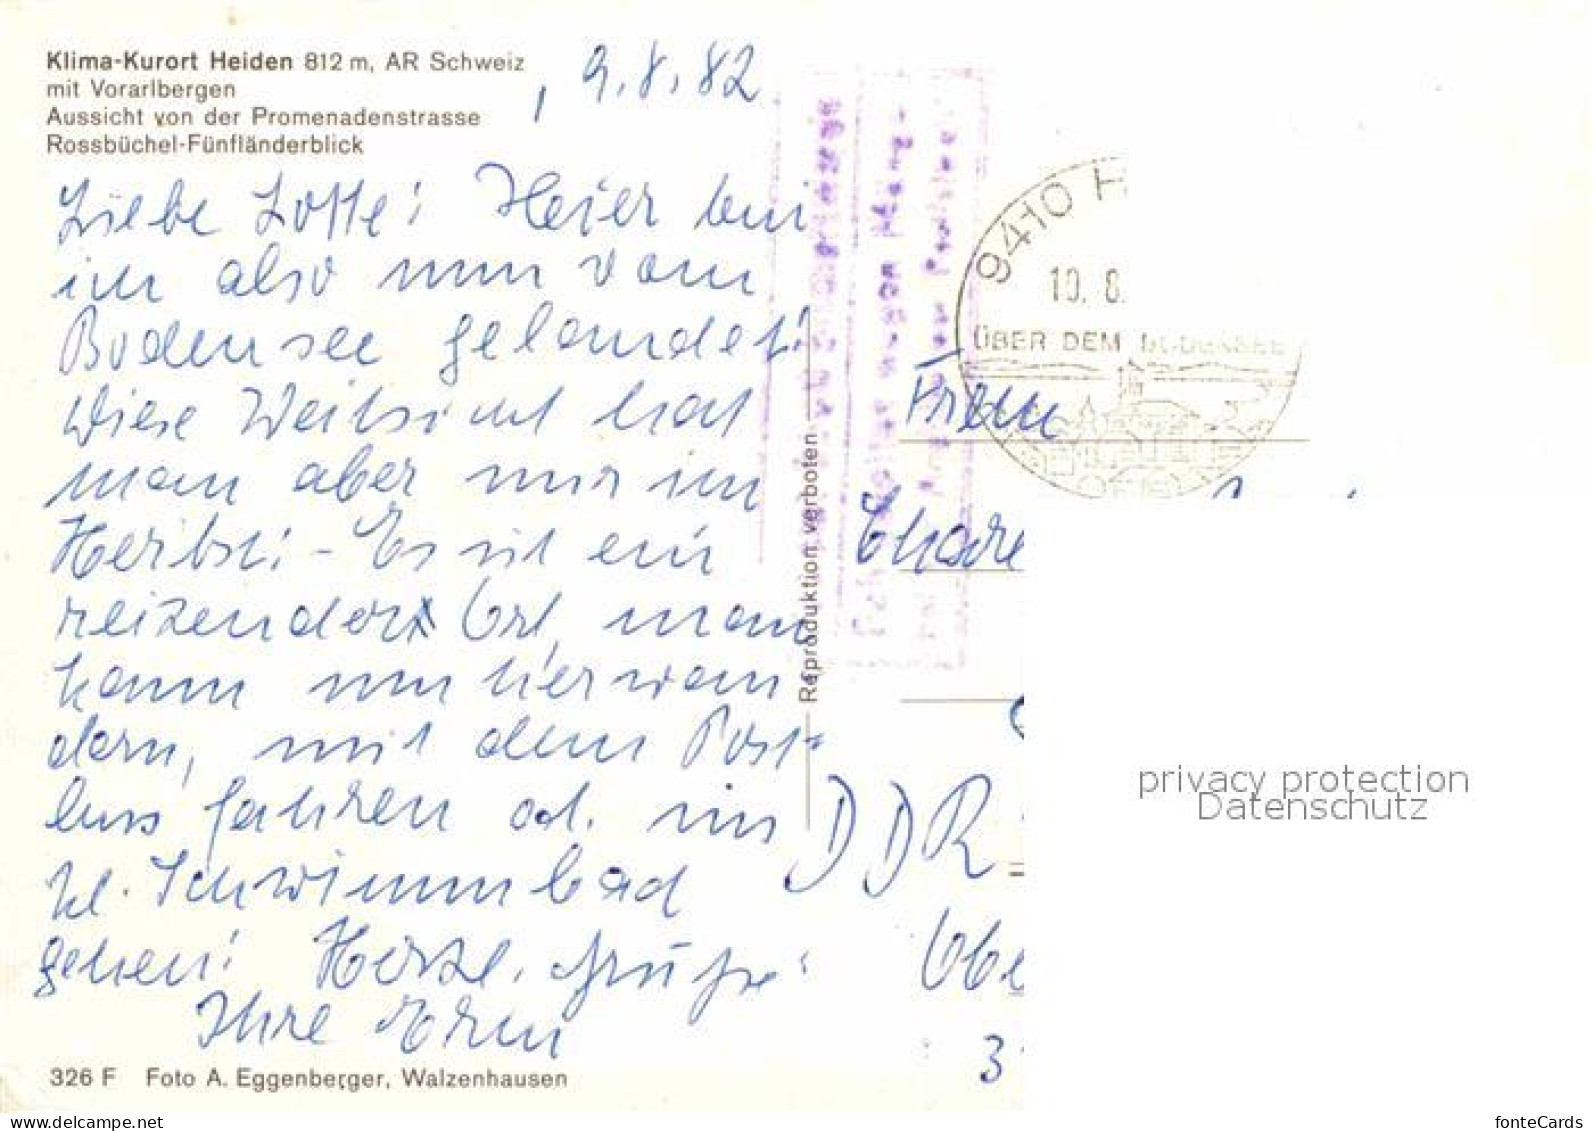 Klima-Kurort Heiden 812 m, AR Schweiz
mit Vorarlbergen
Aussicht von der Promenadenstrasse
Rossbüchel-Fünfländerblick
, 9.8.82
Liebe Lotte! Hier bin
ich also nun vom
Bodensee gelandet!
Diese Weitsicht hat
man aber nur im
Herbst! – Es ist ein
reizender Ort, man
kann nun hier wan
dern, mit dem Post-
bus fahren od. ins
kl. Schwimmbad
gehen! Herzl. Grüße!
Ihre
326 F Foto A. Eggenberger, Walzenhausen
Reproduktion verboten
9410 H
10. 8.
ÜBER DEM BODENSEE
Frau
Chare
DDR
Obe
3
privacy protection
Datenschutz
www.delcampe.net
fonteCards